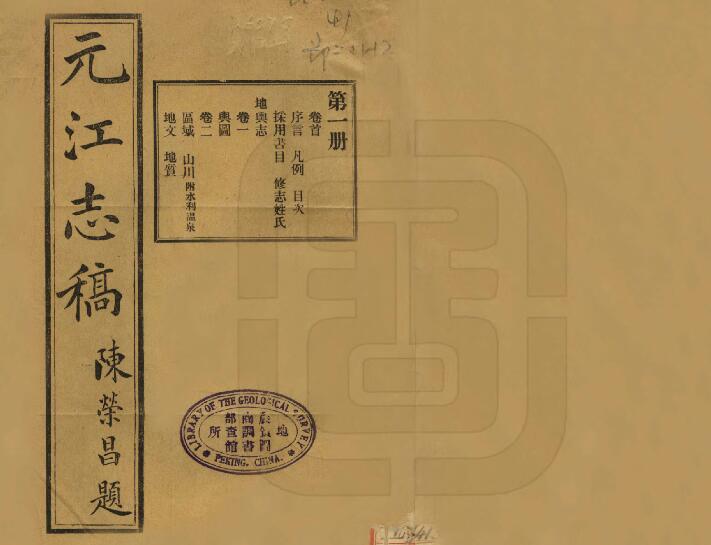 元江志稿
陳榮昌題
第一册
卷首
序言 凡例 目次
採用書目 修志姓氏
地輿志
卷一
輿圖
卷二
區域 山川附水利溫泉
地文 地質
LIBRARY OF THE GEOLOGICAL SURVEY
PEKING, CHINA.